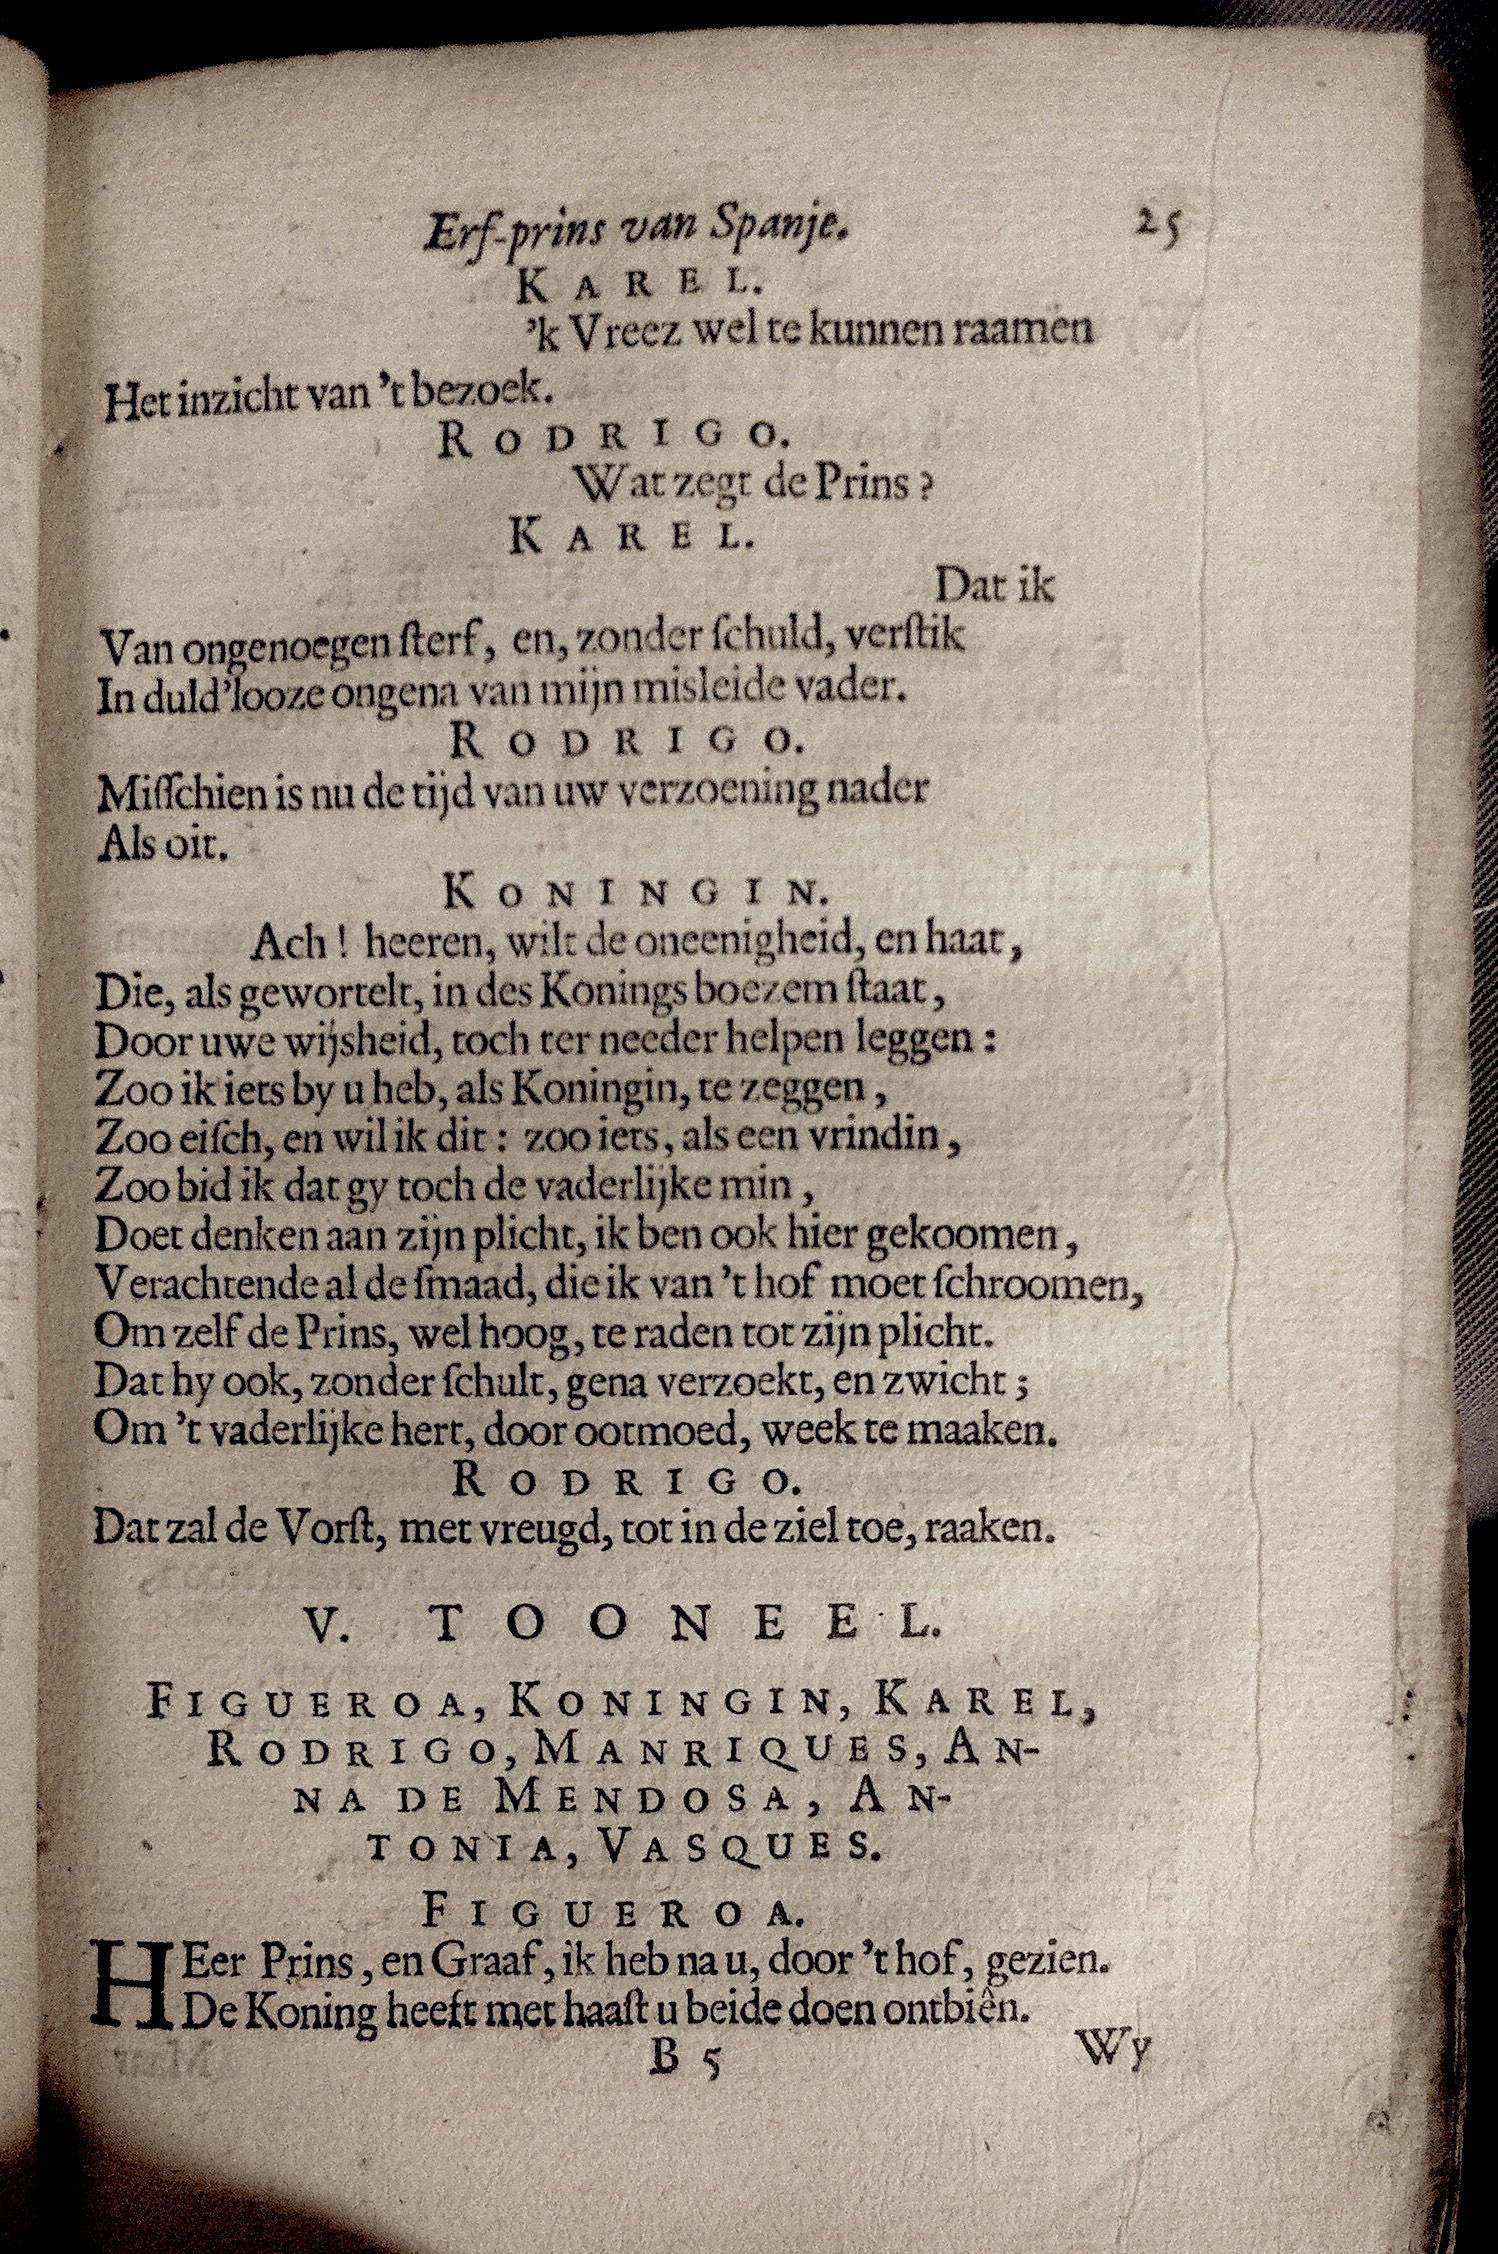 Erf-prins van Spanje. 25
KAREL.
'k Vreez wel te kunnen raamen
Het inzicht van 't bezoek.
RODRIGO.
Wat zegt de Prins?
KAREL.
Dat ik
Van ongenoegen ſterf, en, zonder ſchuld, verſtik
In duld'looze ongena van mijn misleide vader.
RODRIGO.
Miſſchien is nu de tijd van uw verzoening nader
Als oit.
KONINGIN.
Ach! heeren, wilt de oneenigheid, en haat,
Die, als gewortelt, in des Konings boezem ſtaat,
Door uwe wijsheid, toch ter needer helpen leggen:
Zoo ik iets by u heb, als Koningin, te zeggen,
Zoo eiſch, en wil ik dit: zoo iets, als een vrindin,
Zoo bid ik dat gy toch de vaderlijke min,
Doet denken aan zijn plicht, ik ben ook hier gekoomen,
Verachtende al de ſmaad, die ik van 't hof moet ſchroomen,
Om zelf de Prins, wel hoog, te raden tot zijn plicht.
Dat hy ook, zonder ſchult, gena verzoekt, en zwicht;
Om 't vaderlijke hert, door ootmoed, week te maaken.
RODRIGO.
Dat zal de Vorſt, met vreugd, tot in de ziel toe, raaken.
V. TOONEEL.
FIGUEROA, KONINGIN, KAREL,
RODRIGO, MANRIQUES, AN-
NA DE MENDOSA, AN-
TONIA, VASQUES.
FIGUEROA.
HEer Prins, en Graaf, ik heb na u, door 't hof, gezien.
De Koning heeft met haaſt u beide doen ontbiên.
B 5 Wy